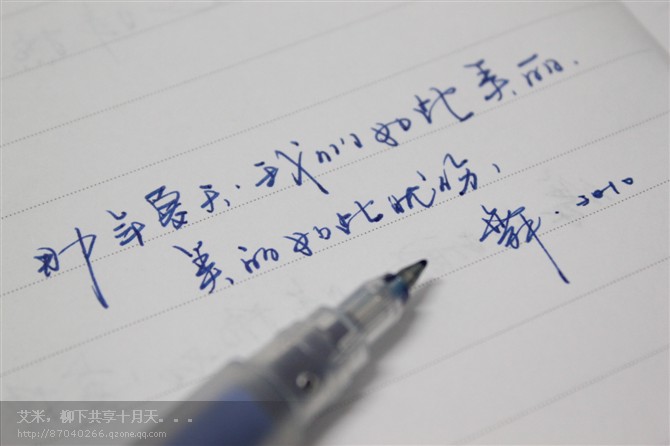 那年夏天.我们如此美丽.
美丽如此忧伤、
2010
艾米，柳下共享十月天。。。
http://87040266.qzone.qq.com